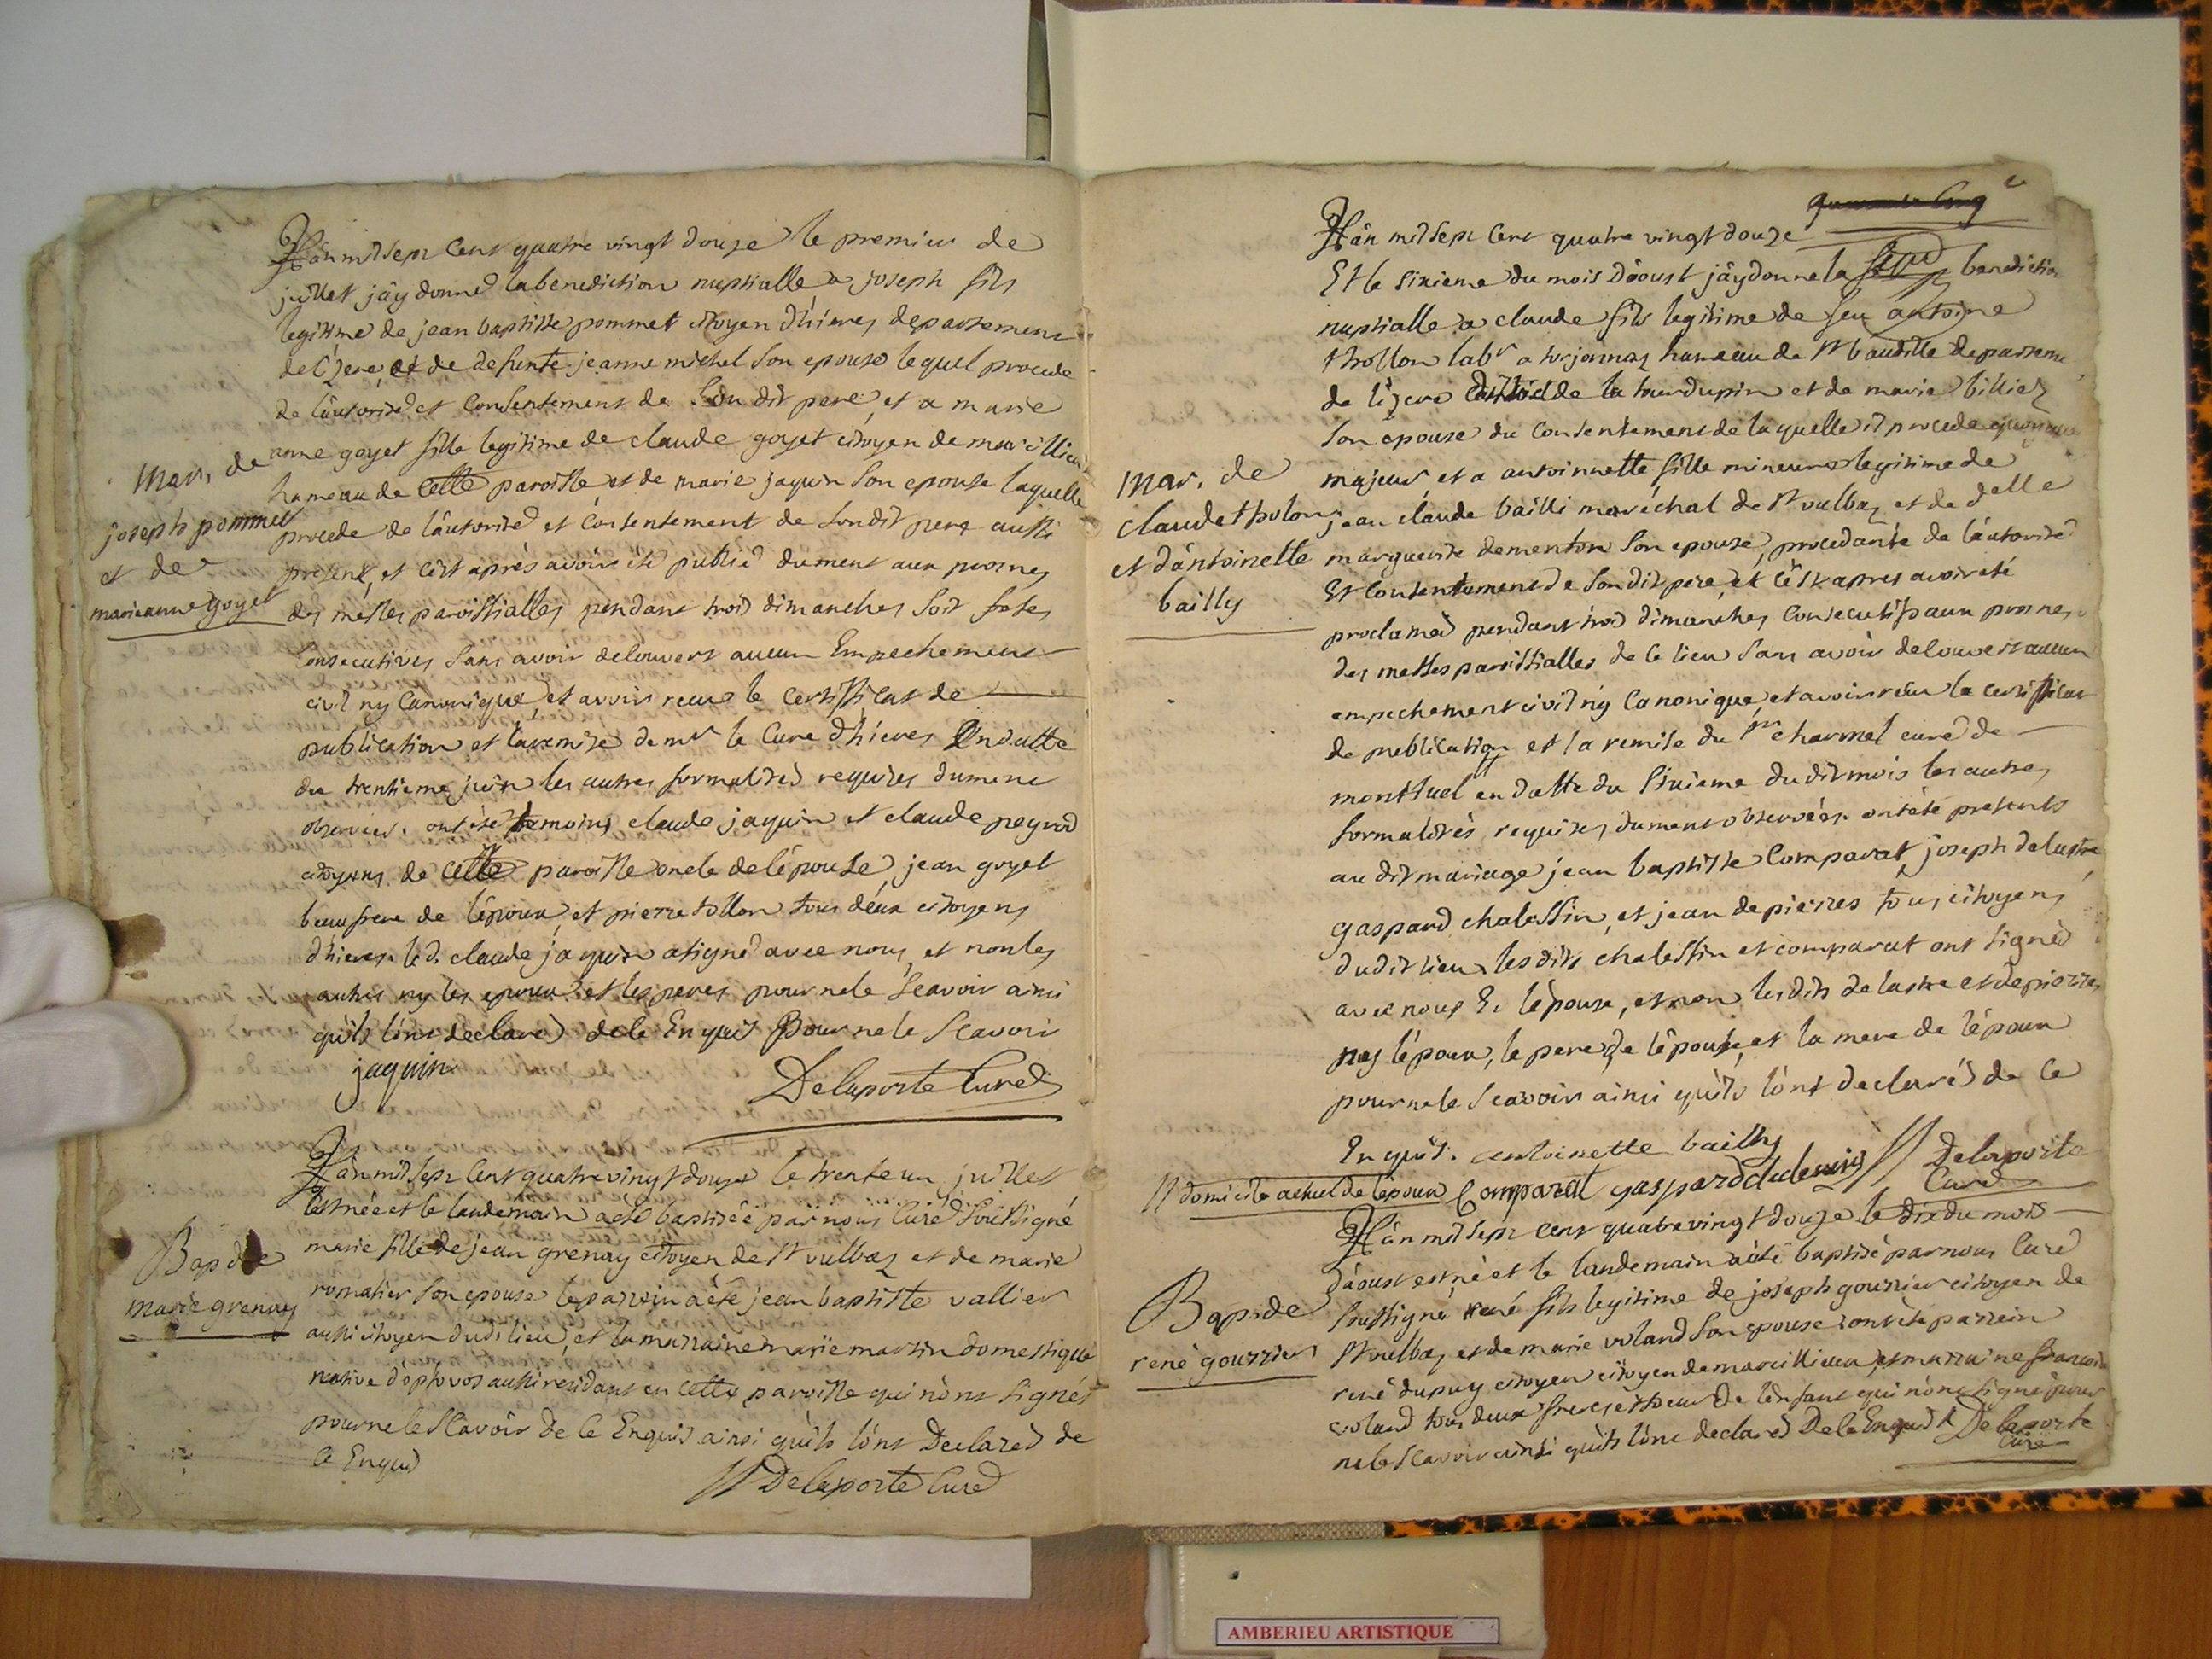 L'an mil sept cent quatre vingt douze le premier de
juillet j'ay donné la benediction nuptialle a joseph fils
legitime de jean baptiste pommet citoyen d'hieres departement
de l'izere, et de defunte jeanne michel son epouse lequel procede
de l'autorité et consentement de son dit pere, et a marie
anne goyet fille legitime de claude goyet citoyen de marcillieu
hameau de cette paroisse et de marie jaquin son epouse laquelle
procede de l'autorité et consentement de sondit pere aussi
present, et c'est après avoir été publié dument aux prones
des messes paroissialles pendant trois dimanches soit fetes
consecutives sans avoir decouvert aucun Empechement
civil ny canonique et avoir recue le certificat de
publication et la remise de mr le Curé d'hieres En datte
du trentieme juin les autres formalités requises dument
observées. ont été temoins claude jaquin et claude peyrod
citoyens de cette paroisse oncle de lépouse, jean goyet
beaufrere de lépoux, et pierre tollon tous deux citoyens
d'hieres. le d. claude jaquin a signé avec nous et non les
autres ny les epoux et les peres pour ne le scavoir ainsi
qu'ils l'ont declaré de ce Enquis Pour ne le scavoir
jaquin
Delaporte Curé
mar. de
joseph pommet
et de
marieanne goyet
L'an mil sept cent quatre vingt douze le trente un juillet
est née et le landemain a été baptisée par nous Curé soussigné
marie fille de jean grenay citoyen de st vulbaz et de marie
romatier son epouse le parrein a été jean baptiste vallier
aussi citoyen dudt lieu, et la marraine marie martin domestique
native d'optovos aussi residant en cette paroisse qui n'ont signés
pour ne le scavoir de ce Enquis ainsi qu'ils l'ont Declarés de
ce Enquis
Delaporte Curé
Bap de
marie grenay
L'an mil sept cent quatre vingt douze
Et le sixieme du mois d'aoust j'ay donné la benediction
nuptialle a claude fils legitime de feu antoine
thollon labr a torjonnaz hameau de st baudille departeme
de lizere district de la tour dupin et de marie billiez
son epouse du consentement de laquelle il procede quoique
majeur, et a antoinette fille mineure legitime de
jean claude bailli maréchal de st vulbaz et de delle
marguerite dementon son epouse, procedante de l'autorité
Et consentement de son dit pere, et c'est apres avoir été
proclamés pendant trois dimanches consecutifs aux prones
des messes paroissialles de ce lieu sans avoir decouvert aucun
empechement civil ny canonique, et avoir reçu le certificat
de publication et la remise du sr charmel curé de
montluel en datte du sixieme dudit mois les autres
formalités requises dument observées. ont été presents
au dit mariage jean baptiste Comparat, joseph delastre
gaspard chalessin, et jean depierres tous citoyens
dudit lieu, les dits chalessin et comparat ont signé
avec nous Et l'épouse, et non lesdits delastre et depierres
ny l'époux, le pere de lépouse, et la mere de lépoux
pour ne le scavoir ainsi qu'ils l'ont declarés de ce
Enquis. antoinette bailly
domicile actuel de lépoux Comparat gaspard Delaporte
Curé
mar. de
claude tholon
et d'antoinette
bailly
L'an mil sept cent quatre vingt douze le dix du mois
d'aoust est né et le landemain a été baptisé par nous Curé
soussigné rené fils legitime de joseph gourrier citoyen de
st vulbaz et de marie voland son epouse ont été parrein
rené dupuy citoyen citoyen de marcillieux, et marraine
voland tous deux frere et soeur de l'enfant qui n'ont signé pour
ne le scavoir ainsi qu'ils l'ont declarés De ce Enquis Delaporte
Curé
Bap de
rené gourrier
AMBERIEU ARTISTIQUE